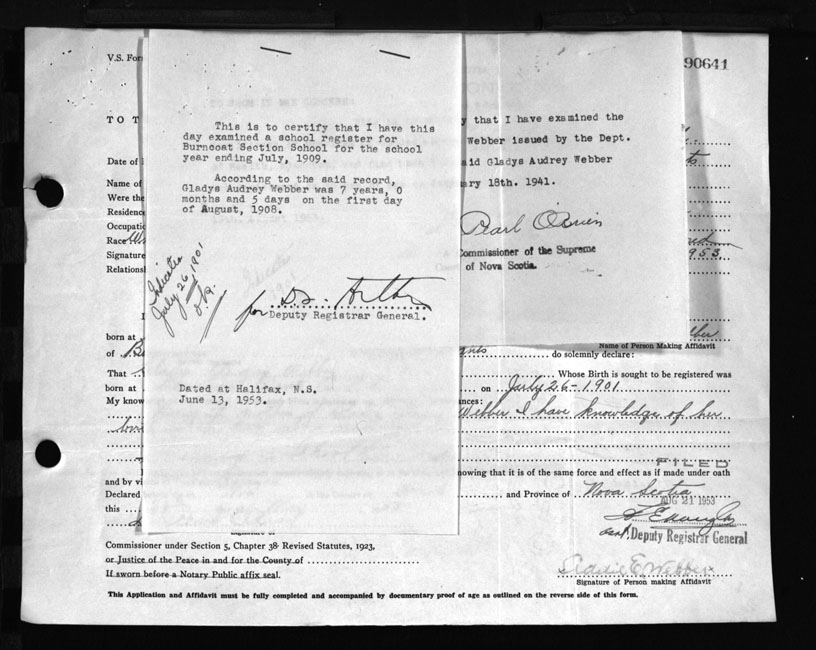 V.S. For
90641
TO T
This is to certify that I have this
day examined a school register for
Burncoat Section School for the school
year ending July, 1909.
According to the said record,
Gladys Audrey Webber was 7 years, 0
months and 5 days on the first day
of August, 1908.
Indicates
July 26, 1901
for
Deputy Registrar General.
Dated at Halifax, N.S.
June 13, 1953.
y that I have examined the
Webber issued by the Dept.
aid Gladys Audrey Webber
ary 18th. 1941.
Pearl O'Brien
Commissioner of the Supreme
Court of Nova Scotia.
Date of
Name of
Were the
Residenc
Occupatio
Race
Signature
Relations
953.
Name of Person Making Affidavit
born at
of
do solemnly declare:
That
Whose Birth is sought to be registered was
born at
on July 26-1901
My know
nces:
Webber I have knowledge of her
nowing that it is of the same force and effect as if made under oath
FILED
and by vi
Declared
and Province of Nova Scotia
AUG 21 1953
this
Deputy Registrar General
Commissioner under Section 5, Chapter 38 Revised Statutes, 1923,
or Justice of the Peace in and for the County of
If sworn before a Notary Public affix seal.
Addie E. Webber
Signature of Person making Affidavit
This Application and Affidavit must be fully completed and accompanied by documentary proof of age as outlined on the reverse side of this form.